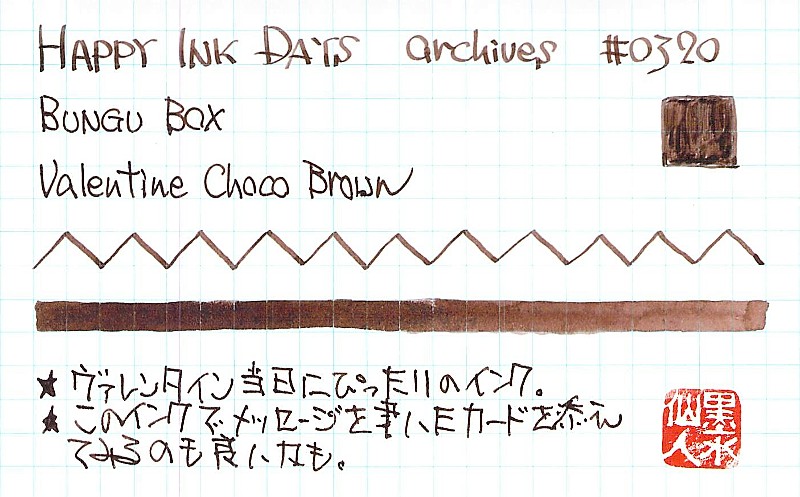 HAPPY INK DAYS archives #0320
BUNGU BOX
Valentine Choco Brown
★ ヴァレンタイン当日にぴったりのインク。
★ このインクで、メッセージを書いたカードを添え
てみるのも良いかも。
黒水
仙人